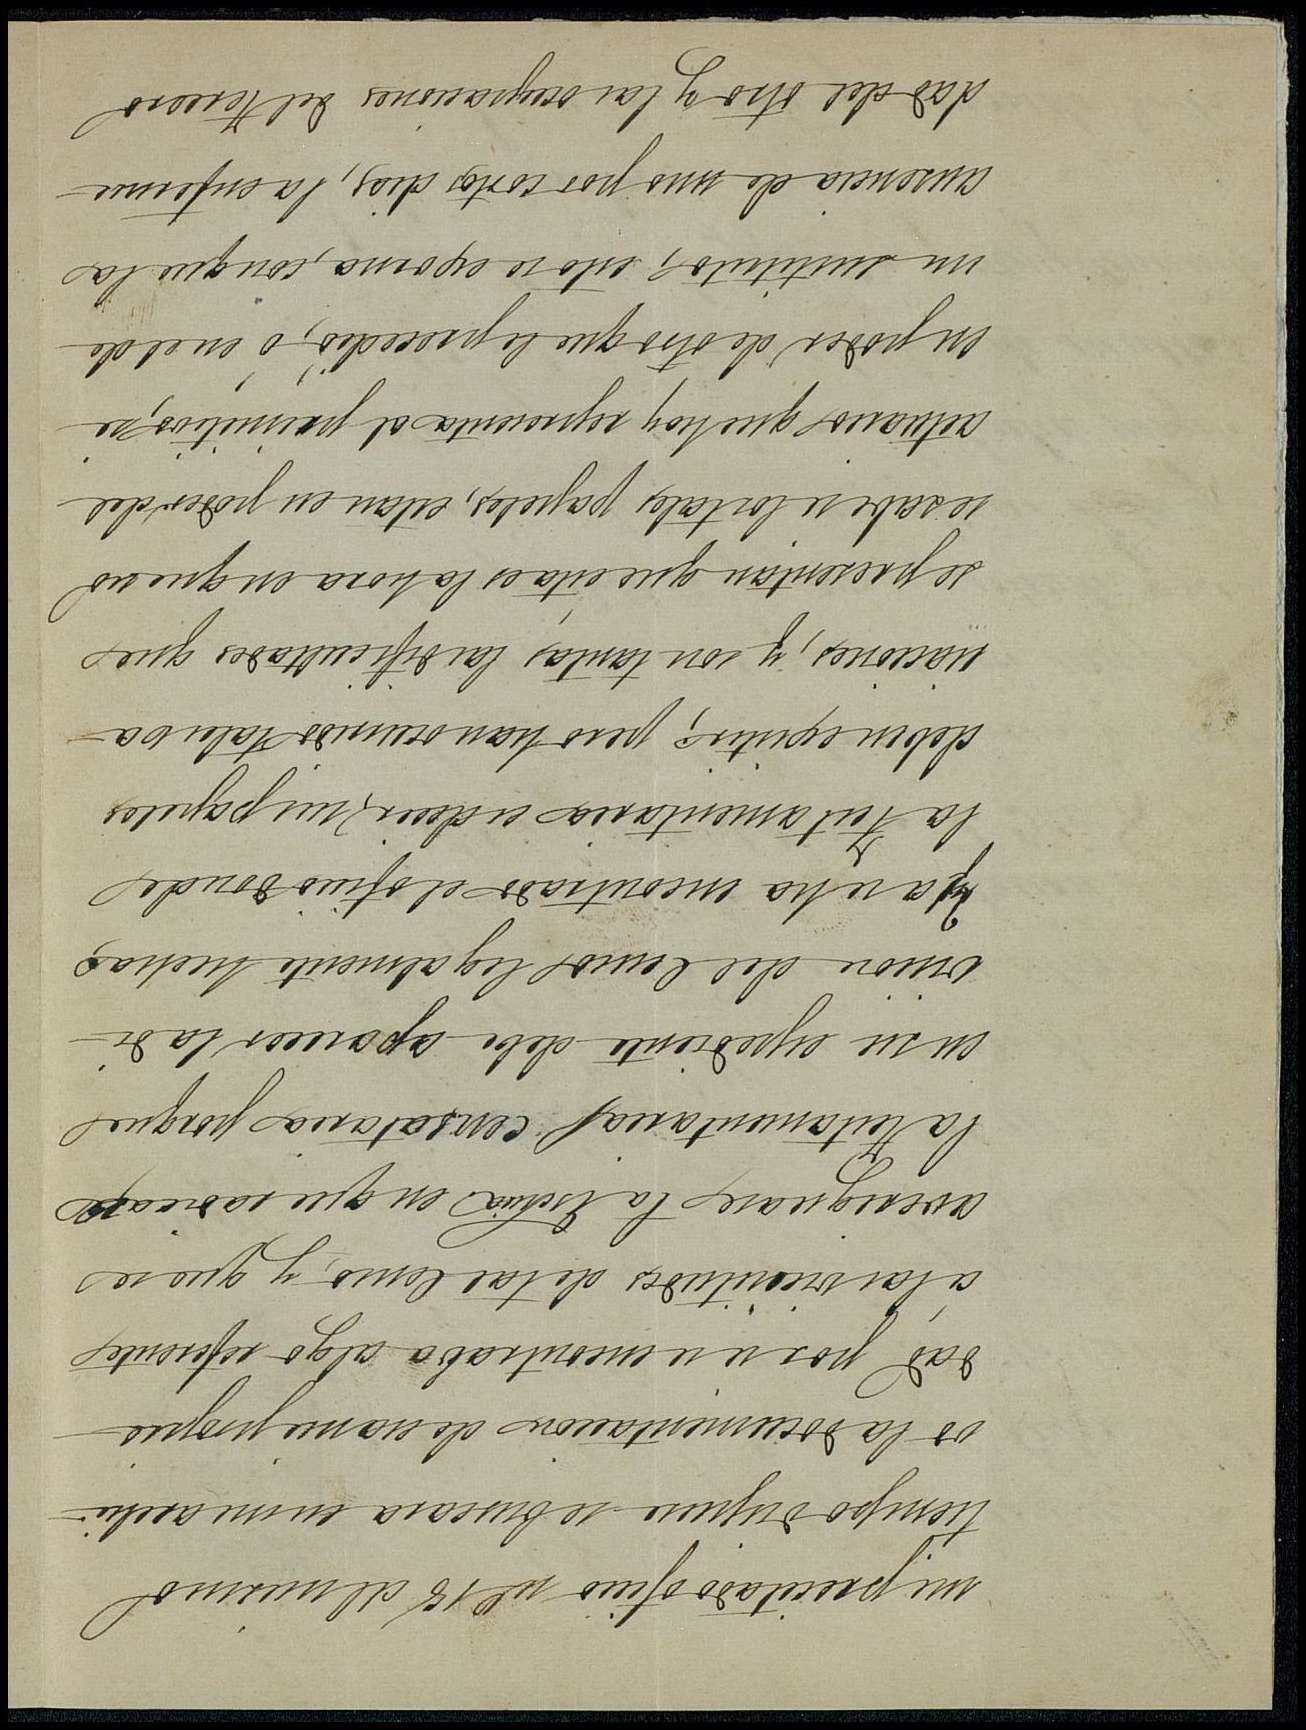 mi precitado oficio nº 18 al mismo
tiempo dispuse se buscara en mi archi-
vo la documentacion de esa mi propie-
dad por si se encontraba algo referente
á las vicisitudes de tal Censo, y que se
averiguase la Escbia en que radicase
la testamentaria Censataria porque
en su expediente debe aparecer la di-
vision del Censo legalmente hecha;
Ya se ha encontrado el oficio donde
la testamentaria es decir, sus papeles
deben existir; pero han ocurrido tales va-
riaciones, y son tantas las dificultades que
se presentan que esta es la hora en que no
se sabe si los tales papeles, estan en poder del
actuario que hoy representa al primitivo, si
en poder de otro que le precedió, ó en el de
un sustituto; esto se explora, con que la
ausencia de uno por cortos dias, la enferme-
dad del otro y las ocupaciones del tercero